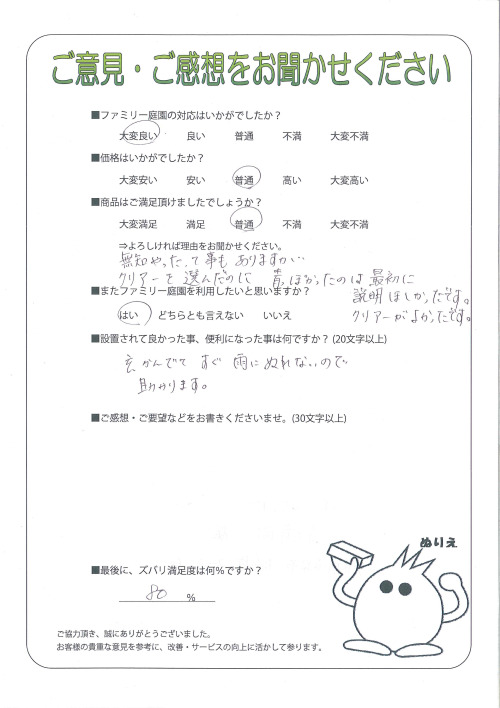 ご意見・ご感想をお聞かせください
■ファミリー庭園の対応はいかがでしたか？
大変良い 良い 普通 不満 大変不満
■価格はいかがでしたか？
大変安い 安い 普通 高い 大変高い
■商品はご満足頂けましたでしょうか？
大変満足 満足 普通 不満 大変不満
⇒よろしければ理由をお聞かせください。
無知やったて事もありますが…
クリアーを選んだのに 青っぽかったのは最初に
説明ほしかったです。
クリアーがよかったです。
■またファミリー庭園を利用したいと思いますか？
はい どちらとも言えない いいえ
■設置されて良かった事、便利になった事は何ですか？(20文字以上)
玄かんでてすぐ雨にぬれないので
助かります。
■ご感想・ご要望などをお書きくださいませ。(30文字以上)
ぬりえ
■最後に、ズバリ満足度は何％ですか？
80 %
ご協力頂き、誠にありがとうございました。
お客様の貴重な意見を参考に、改善・サービスの向上に活かして参ります。